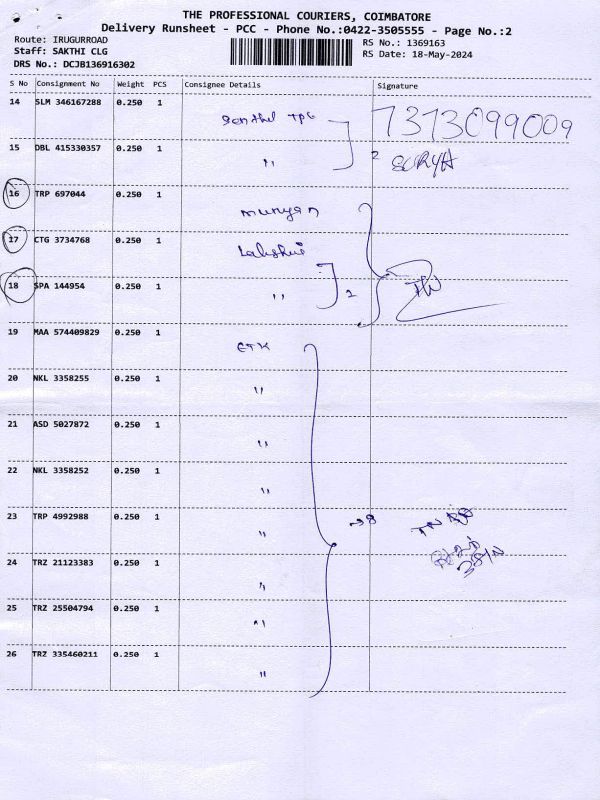 THE PROFESSIONAL COURIERS, COIMBATORE
Delivery Runsheet - PCC - Phone No.:0422-3505555 - Page No.:2
Route: IRUGURROAD
RS No.: 1369163
Staff: SAKTHI CLG
RS Date: 18-May-2024
DRS No.: DCJB136916302
S No Consignment No Weight PCS Consignee Details Signature
14 SLM 346167288 0.250 1 Senthil TPG 7373099009
15 DBL 415330357 0.250 1 " 2 SURYA
16 TRP 697044 0.250 1 murugan
17 CTG 3734768 0.250 1 Lakshmi
18 SPA 144954 0.250 1 " 2
19 MAA 574409829 0.250 1 ETK
20 NKL 3358255 0.250 1 "
21 ASD 5027872 0.250 1 "
22 NKL 3358252 0.250 1 "
23 TRP 4992988 0.250 1 " →8 TN
24 TRZ 21123383 0.250 1 "
25 TRZ 25504794 0.250 1 "
26 TRZ 335460211 0.250 1 "